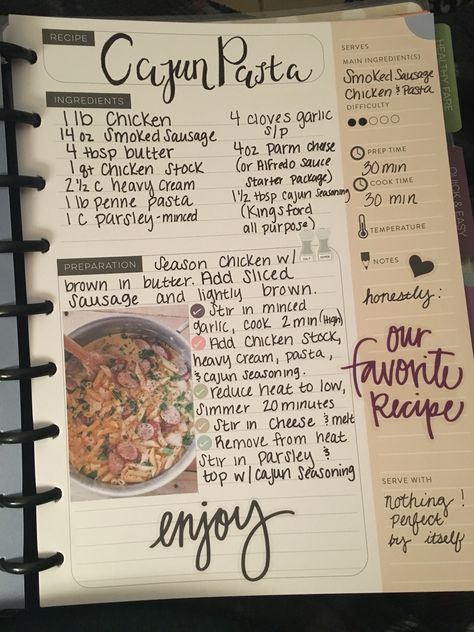 RECIPE
Cajun Pasta
INGREDIENTS
1 lb Chicken
14 oz Smoked Sausage
4 tbsp butter
1 qt Chicken Stock
2 1/2 c heavy Cream
1 lb penne pasta
1 C parsley-minced
4 cloves garlic
S/P
4oz Parm Cheese
(or Alfredo Sauce
Starter package)
1 1/2 tbsp cajun seasoning
(Kingsford
all purpose)
SALT PEPPER
PREPARATION
Season Chicken w/
brown in butter. Add Sliced
Sausage and lightly brown.
Stir in minced
garlic, cook 2 min (High)
Add Chicken Stock,
heavy Cream, pasta,
& cajun seasoning.
reduce heat to low,
Simmer 20 minutes
Stir in Cheese & melt
Remove from heat
Stir in Parsley &
top w/ Cajun Seasoning
enjoy
SERVES
MAIN INGREDIENT(S)
Smoked Sausage
Chicken & Pasta
DIFFICULTY
PREP TIME
30 min
COOK TIME
30 min
TEMPERATURE
NOTES
honestly:
our
favorite
Recipe
SERVE WITH
nothing!
perfect
by itself
HEALTHY FARE
QUICK & EASY